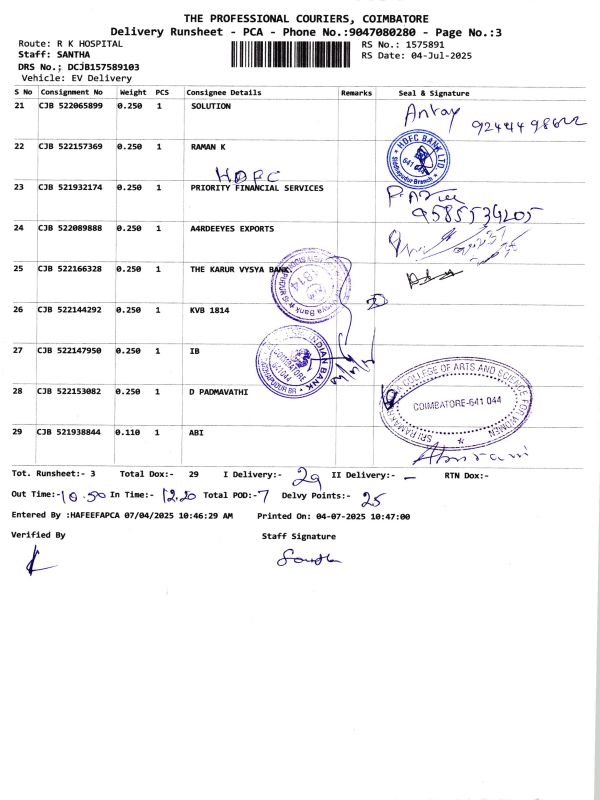 THE PROFESSIONAL COURIERS, COIMBATORE
Delivery Runsheet - PCA - Phone No.:9047080280 - Page No.:3
Route: R K HOSPITAL
Staff: SANTHA
DRS No.; DCJB157589103
Vehicle: EV Delivery
RS No.: 1575891
RS Date: 04-Jul-2025
S No Consignment No Weight PCS Consignee Details Remarks Seal & Signature
21 CJB 522065899 0.250 1 SOLUTION
22 CJB 522157369 0.250 1 RAMAN K
HDFC BANK LTD
641 044
Siddhapudur Branch
HDFC
23 CJB 521932174 0.250 1 PRIORITY FINANCIAL SERVICES
9585534205
24 CJB 522089888 0.250 1 A4RDEEYES EXPORTS
25 CJB 522166328 0.250 1 THE KARUR VYSYA BANK
1814
26 CJB 522144292 0.250 1 KVB 1814
27 CJB 522147950 0.250 1 IB
INDIAN BANK
COIMBATORE
641044
28 CJB 522153082 0.250 1 D PADMAVATHI
COLLEGE OF ARTS AND SCIENCE FOR WOMEN
COIMBATORE-641 044
SRI RAMAK
29 CJB 521938844 0.110 1 ABI
Tot. Runsheet:- 3 Total Dox:- 29 I Delivery:- 29 II Delivery:- - RTN Dox:-
Out Time:-10.50 In Time:- 12.20 Total POD:-7 Delvy Points:- 25
Entered By :HAFEEFAPCA 07/04/2025 10:46:29 AM Printed On: 04-07-2025 10:47:00
Verified By Staff Signature